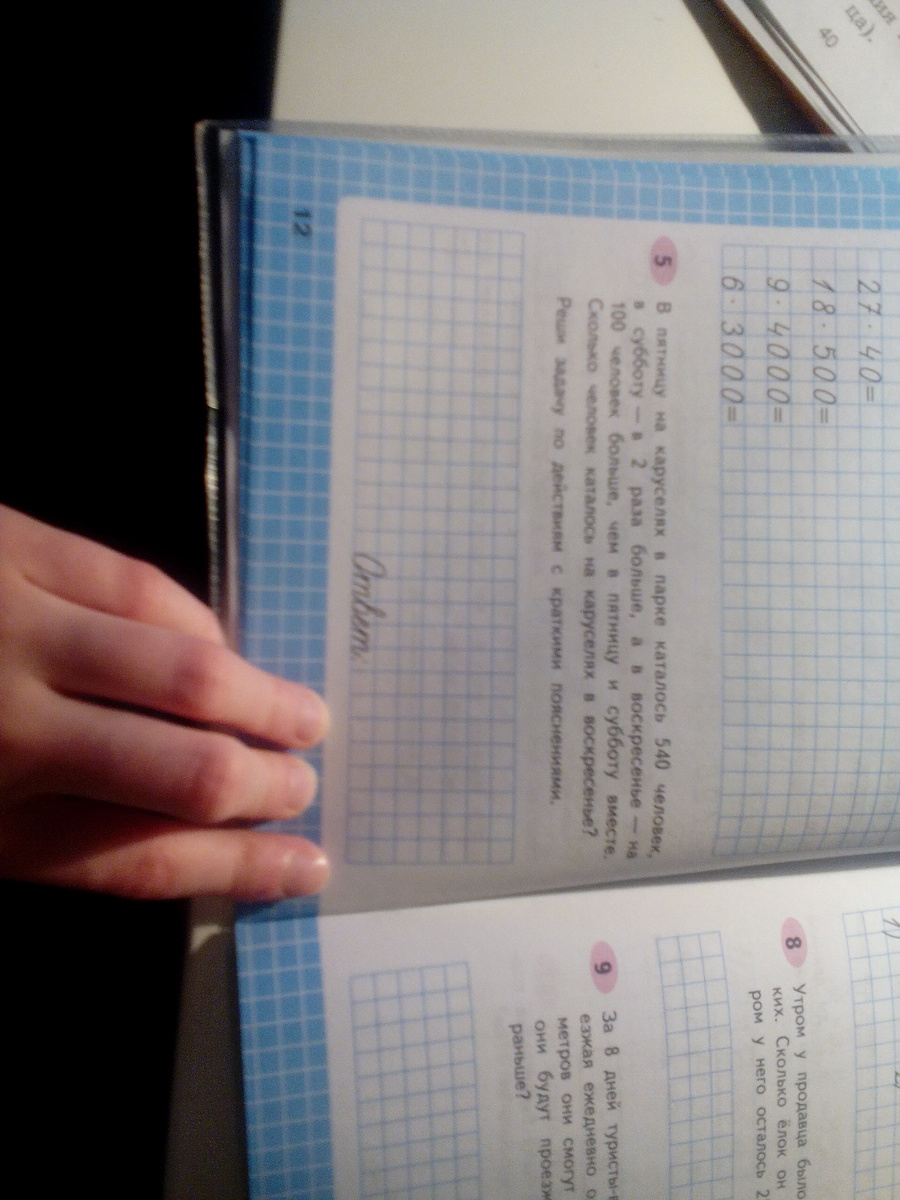 ца).
40
27·40=
18·500=
9·4000=
6·3000=
5 В пятницу на каруселях в парке каталось 540 человек,
в субботу — в 2 раза больше, а в воскресенье — на
100 человек больше, чем в пятницу и субботу вместе.
Сколько человек каталось на каруселях в воскресенье?
Реши задачу по действиям с краткими пояснениями.
Ответ:
12
1)
8 Утром у продавца было
ких. Сколько ёлок он
ром у него осталось 2
9 За 8 дней туристы-
езжая ежедневно
метров они смогут
они будут проезж
раньше?